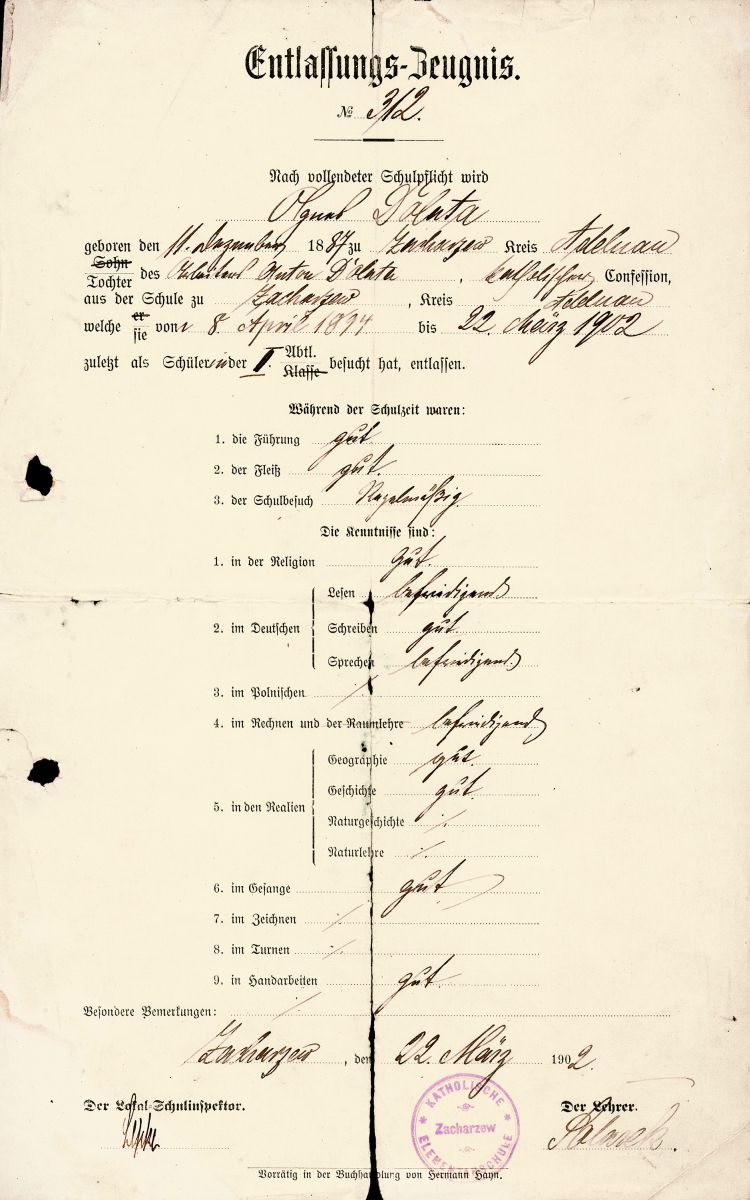 Entlassungs-Zeugnis.
№ 312.
Nach vollendeter Schulpflicht wird
Agnes Dolata
geboren den 11. Dezember 1887 zu Zacharzew Kreis Adelnau
Sohn
Tochter des Arbeiters Anton Dolata, katholischer Confession,
aus der Schule zu Zacharzew, Kreis Adelnau
welche er
sie vom 8. April 1894 bis 22. März 1902
zuletzt als Schülerin der II. Abtl.
Klasse besucht hat, entlassen.
Während der Schulzeit waren:
1. die Führung gut.
2. der Fleiß gut.
3. der Schulbesuch Regelmäßig.
Die Kenntnisse sind:
1. in der Religion gut.
2. im Deutschen
Lesen befriedigend
Schreiben gut.
Sprechen befriedigend.
3. im Polnischen ./.
4. im Rechnen und der Raumlehre befriedigend
5. in den Realien
Geographie gut.
Geschichte gut.
Naturgeschichte ./.
Naturlehre ./.
6. im Gesange gut
7. im Zeichnen ./.
8. im Turnen ./.
9. in Handarbeiten gut.
Besondere Bemerkungen: ./.
Zacharzew, den 22. März 1902.
Der Lokal-Schulinspektor.
Der Lehrer.
KATHOLISCHE
Zacharzew
ELEMENTARSCHULE
Vorrätig in der Buchhandlung von Hermann Hayn.